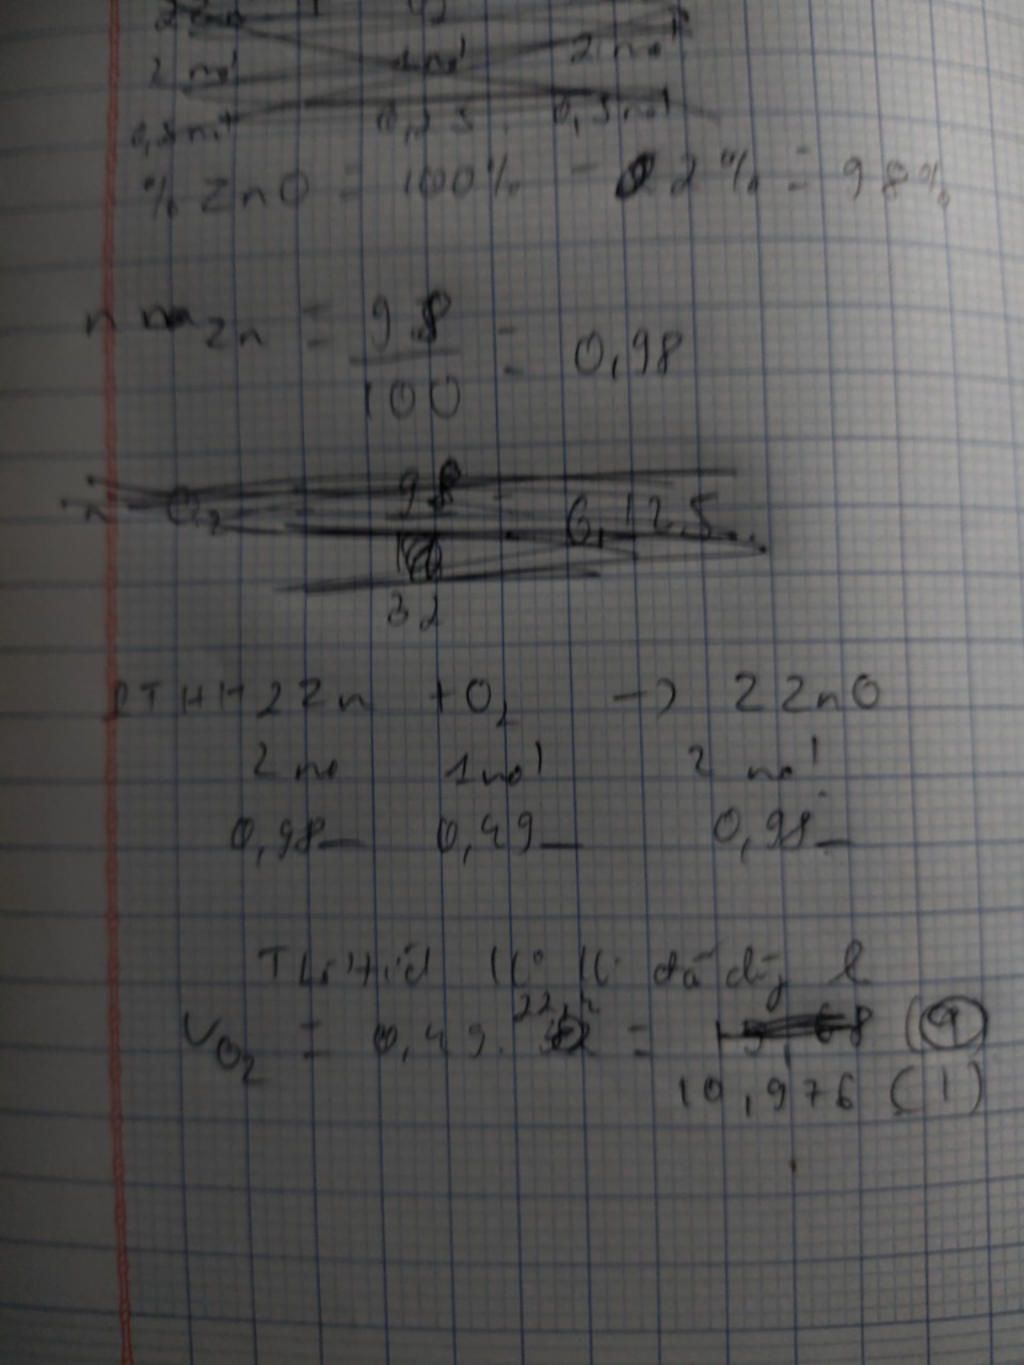 2 mol 1 mol 2 mol
0,5 mol 0,25 0,5 mol
% ZnO = 100% - 2% = 98%
n Zn = 98 / 100 = 0,98
n O2 98 / 32 6,125
PTHH 2Zn + O2 → 2ZnO
2 mo 1 mol 2 mol
0,98 — 0,49 — 0,98 —
đã
VO2 = 0,49. 22,4 =
10,976 (l)